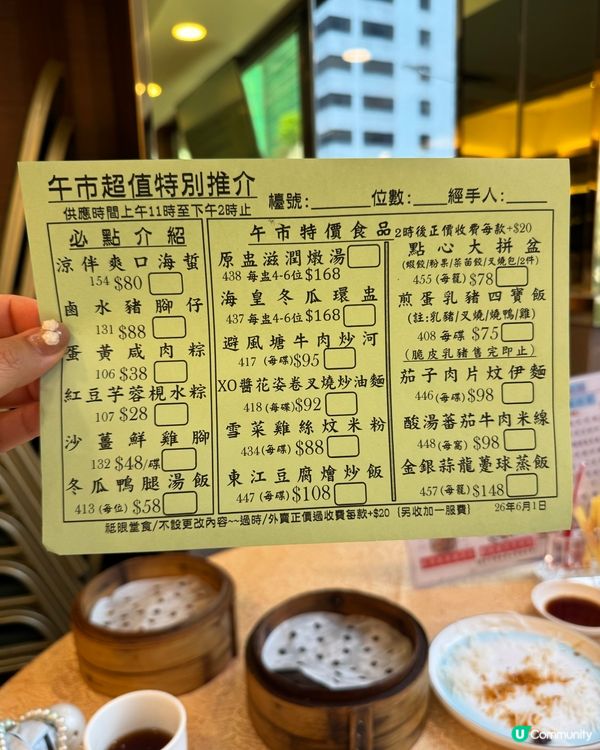 午市超值特別推介
檯號:______ 位數:____ 經手人:____
供應時間上午11時至下午2時止
必點介紹
涼伴爽口海蜇
154 $80
鹵水豬腳仔
131 $88
蛋黃咸肉粽
106 $38
紅豆芋蓉梘水粽
107 $28
沙薑鮮雞腳
132 $48/碟
冬瓜鴨腿湯飯
413 (每位) $58
午市特價食品 2時後正價收費每款+$20
原盅滋潤燉湯
438 每盅4-6位 $168
海皇冬瓜環盅
437 每盅4-6位 $168
避風塘牛肉炒河
417 (每碟) $95
XO醬花姿卷叉燒炒油麵
418 (每碟) $92
雪菜雞絲炆米粉
434 (每碟) $88
東江豆腐燴炒飯
447 (每碟) $108
點心大拼盆
(蝦餃/粉果/茶苗餃/叉燒包/2件)
455 (每籠) $78
煎蛋乳豬四寶飯
(註:乳豬/叉燒/燒鴨/雞)
408 每碟 $75
(脆皮乳豬售完即止)
茄子肉片炆伊麵
446 (每碟) $98
酸湯蕃茄牛肉米線
448 (每窩) $98
金銀蒜龍躉球蒸飯
457 (每籠) $148
祗限堂食/不設更改內容~~過時/外賣正價過收費每款+$20 {另收加一服費} 26年6月1日
U Community